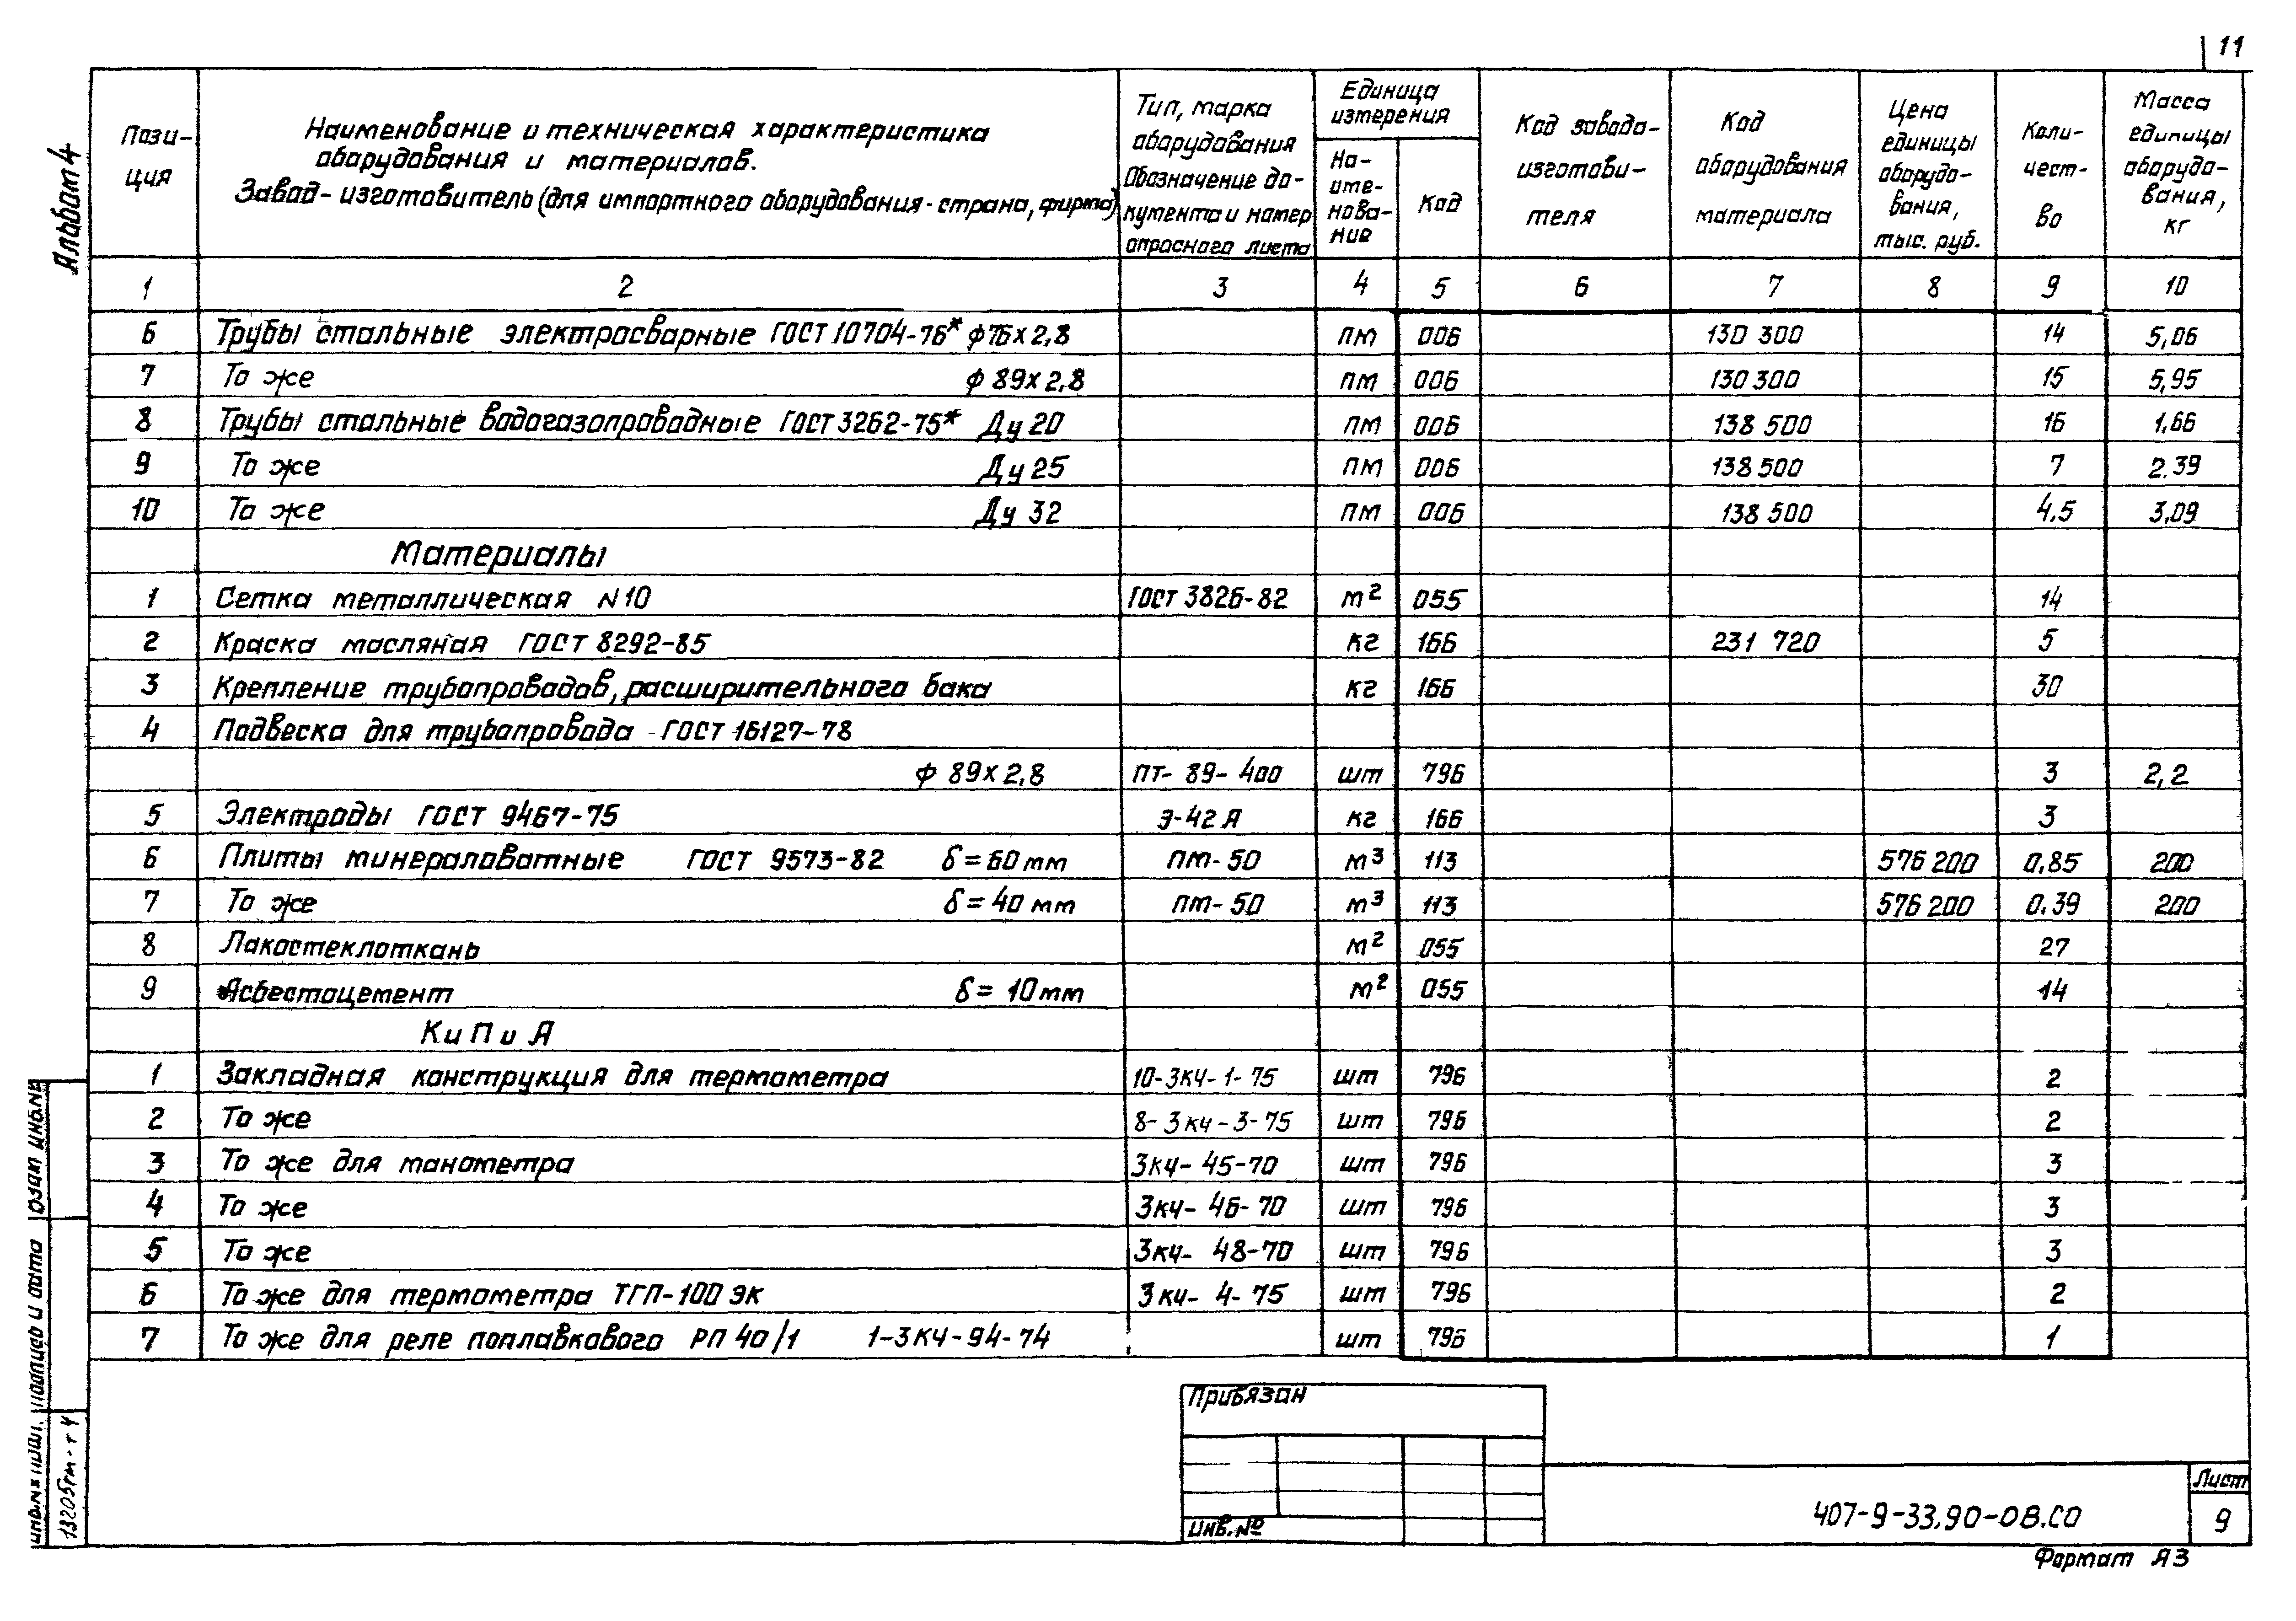 11
Альбом 4
Пози-
ция
Наименование и техническая характеристика
оборудования и материалов.
Завод-изготовитель (для импортного оборудования-страна, фирма)
Тип, марка
оборудования
Обозначение до-
кумента и номер
опросного листа
Единица
измерения
На-
име-
нова-
ние
Код
Код завода-
изготови-
теля
Код
оборудования
материала
Цена
единицы
оборудо-
вания,
тыс. руб.
Коли-
чест-
во
Масса
единицы
оборудо-
вания,
кг
1 2 3 4 5 6 7 8 9 10
6 Трубы стальные электросварные ГОСТ 10704-76* ф76х2,8 пм 006 130 300 14 5,06
7 То же ф 89х2,8 пм 006 130 300 15 5,95
8 Трубы стальные водогазопроводные ГОСТ 3262-75* Ду 20 пм 006 138 500 16 1,66
9 То же Ду 25 пм 006 138 500 7 2.39
10 То же Ду 32 пм 006 138 500 4.5 3,09
Материалы
1 Сетка металлическая N 10 ГОСТ 3826-82 м² 055 14
2 Краска масляная ГОСТ 8292-85 кг 166 231 720 5
3 Крепление трубопроводов, расширительного бака кг 166 30
4 Подвеска для трубопровода ГОСТ 16127-78
ф 89х2,8 ПТ-89-400 шт 796 3 2,2
5 Электроды ГОСТ 9467-75 Э-42А кг 166 3
6 Плиты минераловатные ГОСТ 9573-82 δ=60мм ПМ-50 м³ 113 576 200 0,85 200
7 То же δ=40мм ПМ-50 м³ 113 576 200 0.39 200
8 Лакостеклоткань м² 055 27
9 Асбестоцемент δ= 10мм м² 055 14
КиПиА
1 Закладная конструкция для термометра 10-ЗКЧ-1-75 шт 796 2
2 То же 8-ЗКЧ-3-75 шт 796 2
3 То же для манометра ЗКЧ-45-70 шт 796 3
4 То же ЗКЧ-46-70 шт 796 3
5 То же ЗКЧ-48-70 шт 796 3
6 То же для термометра ТГП-100 ЭК ЗКЧ-4-75 шт 796 2
7 То же для реле поплавкового РП 40/1 1-ЗКЧ-94-74 шт 796 1
Привязан
Инв. №
407-9-33.90-ОВ.СО
Лист
9
Формат А3
Инв.№ подл.
Подпись и дата
Взам инв.№
13205тм-т4